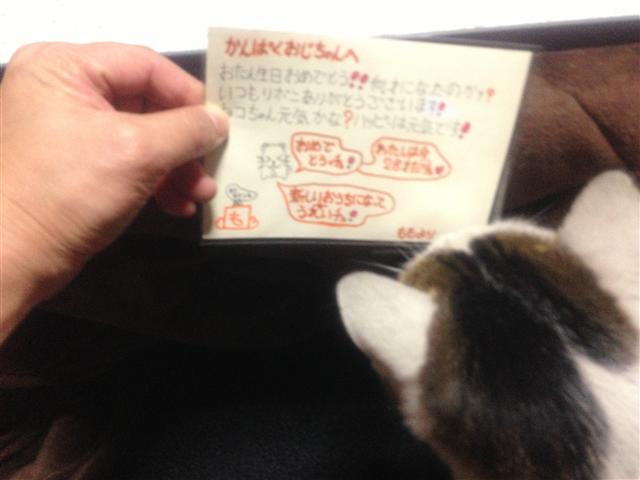 かんぱくおじちゃんへ
おたん生日おめでとう!! 何才になったのかな?
いつもりかこありがとうございます!
ココちゃん元気かな?ハッピーは元気です!
おめで
とうワん!
わたしは今
28才だわん
新しいおうちになって
うれしいわん!
も
ももより